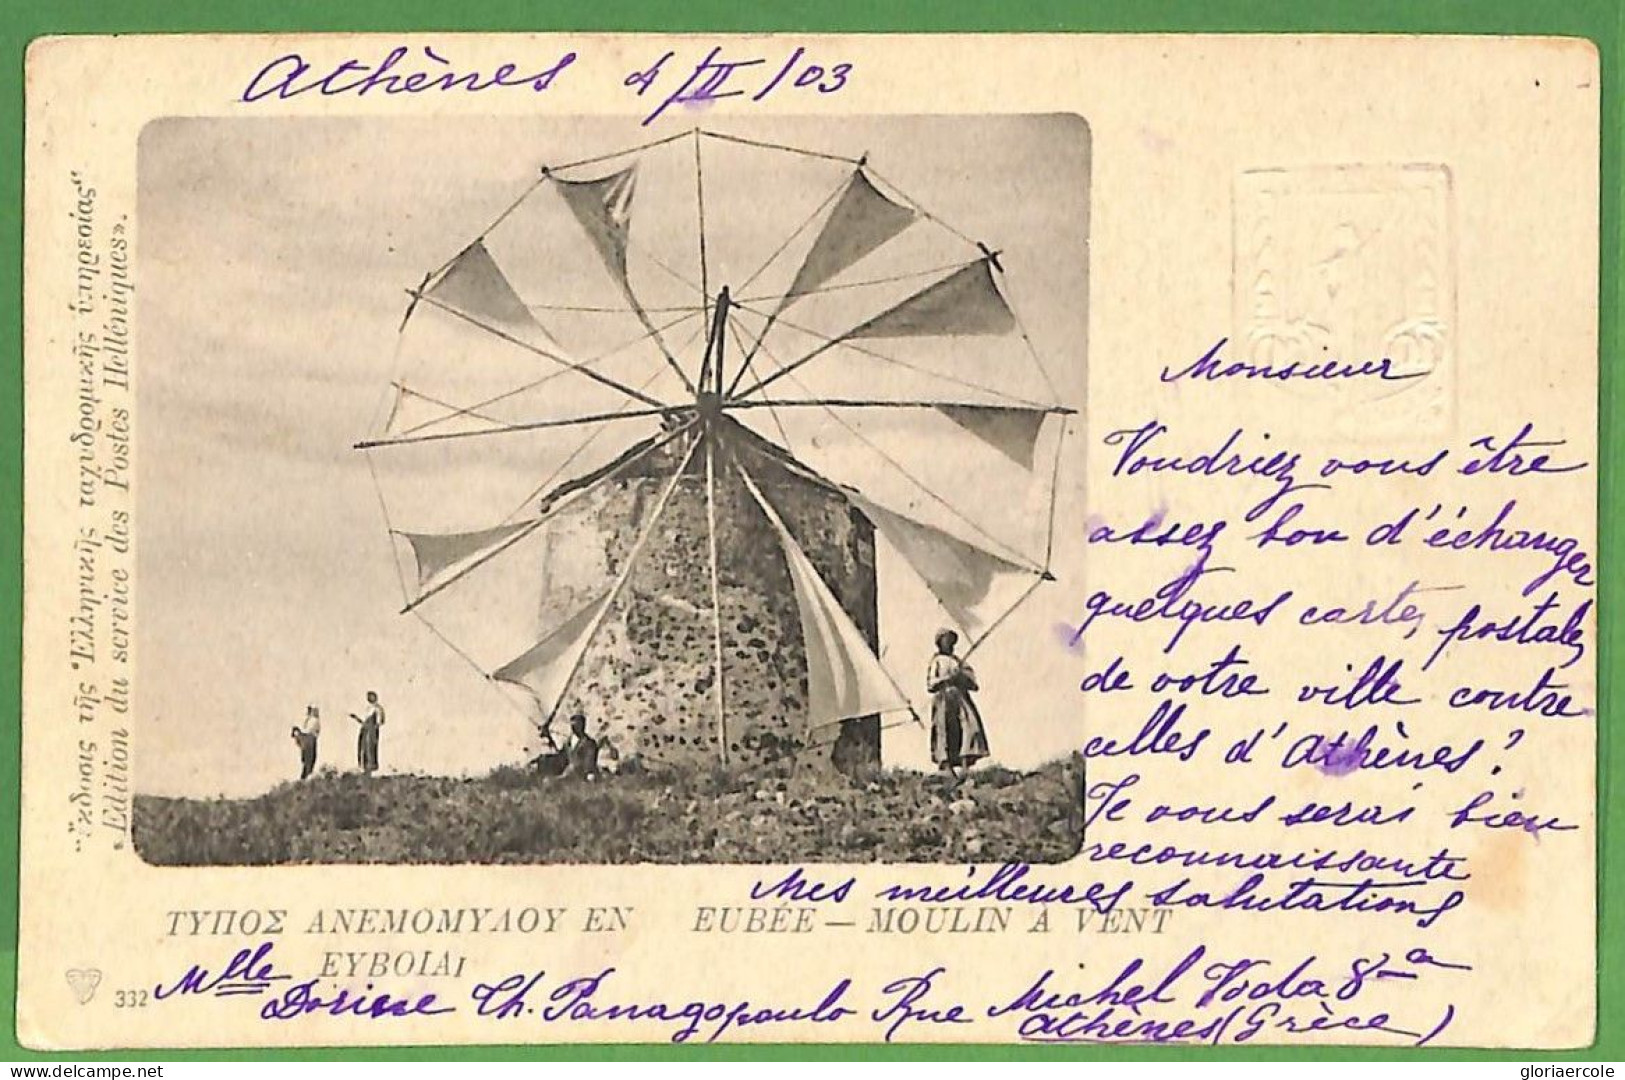 Athènes 4/II/03
„Ἔκδοσις τῆς Ἑλληνικῆς ταχυδρομικῆς ὑπηρεσίας”
«Edition du service des Postes Helléniques».
Monsieur
Voudriez vous être
assez bon d'échanger
quelques cartes postales
de votre ville contre
celles d'Athènes?
Je vous serai bien
reconnaissante
Mes meilleures salutations
ΤΥΠΟΣ ΑΝΕΜΟΜΥΛΟΥ ΕΝ ΕΥΒΟΙΑΙ
EUBÉE — MOULIN A VENT
332
Mlle Dorisse Th. Panagopoulo Rue Michel Voda 8a
Athènes (Grèce)
gloriaercole